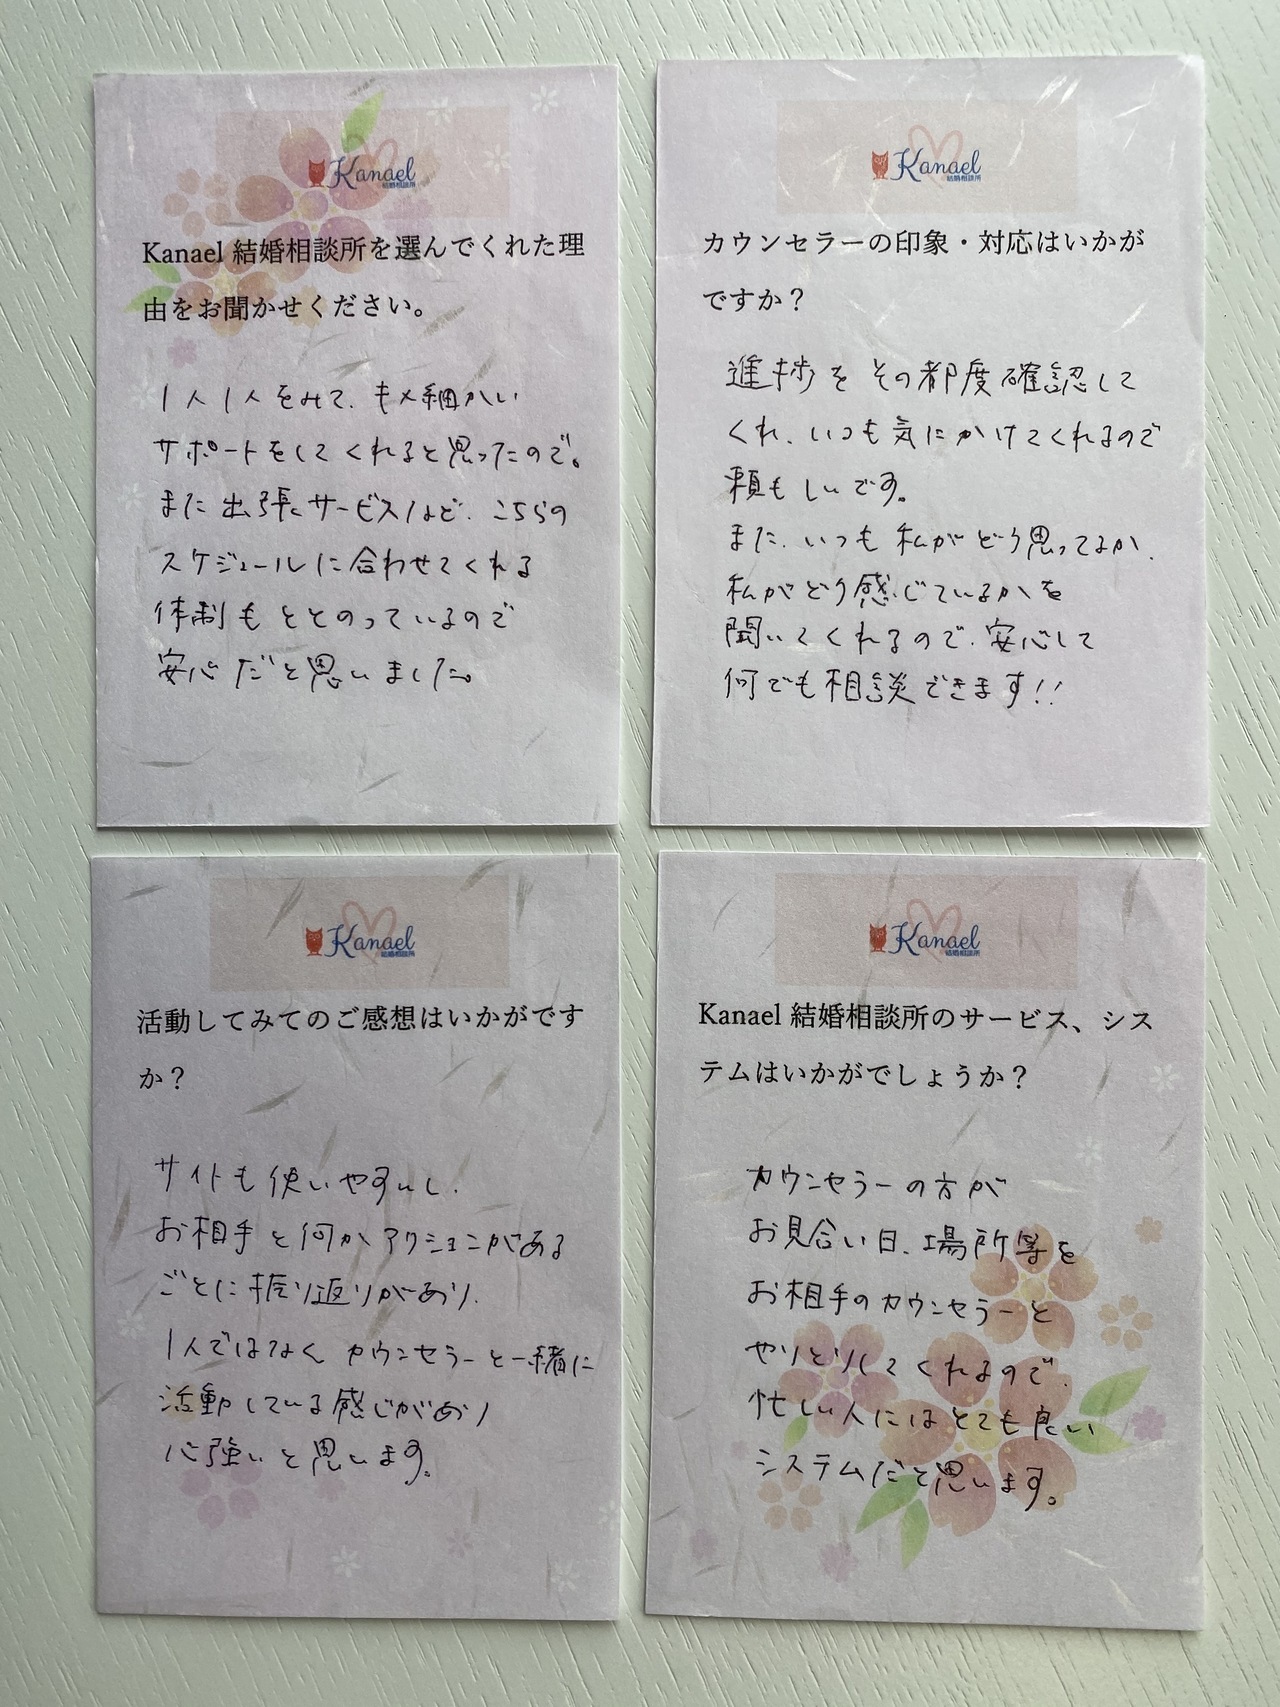 Kanael
結婚相談所
Kanael 結婚相談所を選んでくれた理
由をお聞かせください。
1人1人をみて、きめ細かい
サポートをしてくれると思ったので。
また出張サービスなど、こちらの
スケジュールに合わせてくれる
体制もととのっているので
安心だと思いました。
Kanael
結婚相談所
カウンセラーの印象・対応はいかが
ですか？
進捗をその都度確認して
くれ、いつも気にかけてくれるので
頼もしいです。
また、いつも私がどう思ってるか、
私がどう感じているかを
聞いてくれるので、安心して
何でも相談できます!!
Kanael
結婚相談所
活動してみてのご感想はいかがです
か？
サイトも使いやすいし、
お相手と何かアクションがある
ごとに振り返りがあり、
1人ではなく カウンセラーと一緒に
活動している感じがあり
心強いと思います。
Kanael
結婚相談所
Kanael 結婚相談所のサービス、シス
テムはいかがでしょうか？
カウンセラーの方が
お見合い日、場所等を
お相手のカウンセラーと
やりとりしてくれるので、
忙しい人にはとても良い
システムだと思います。